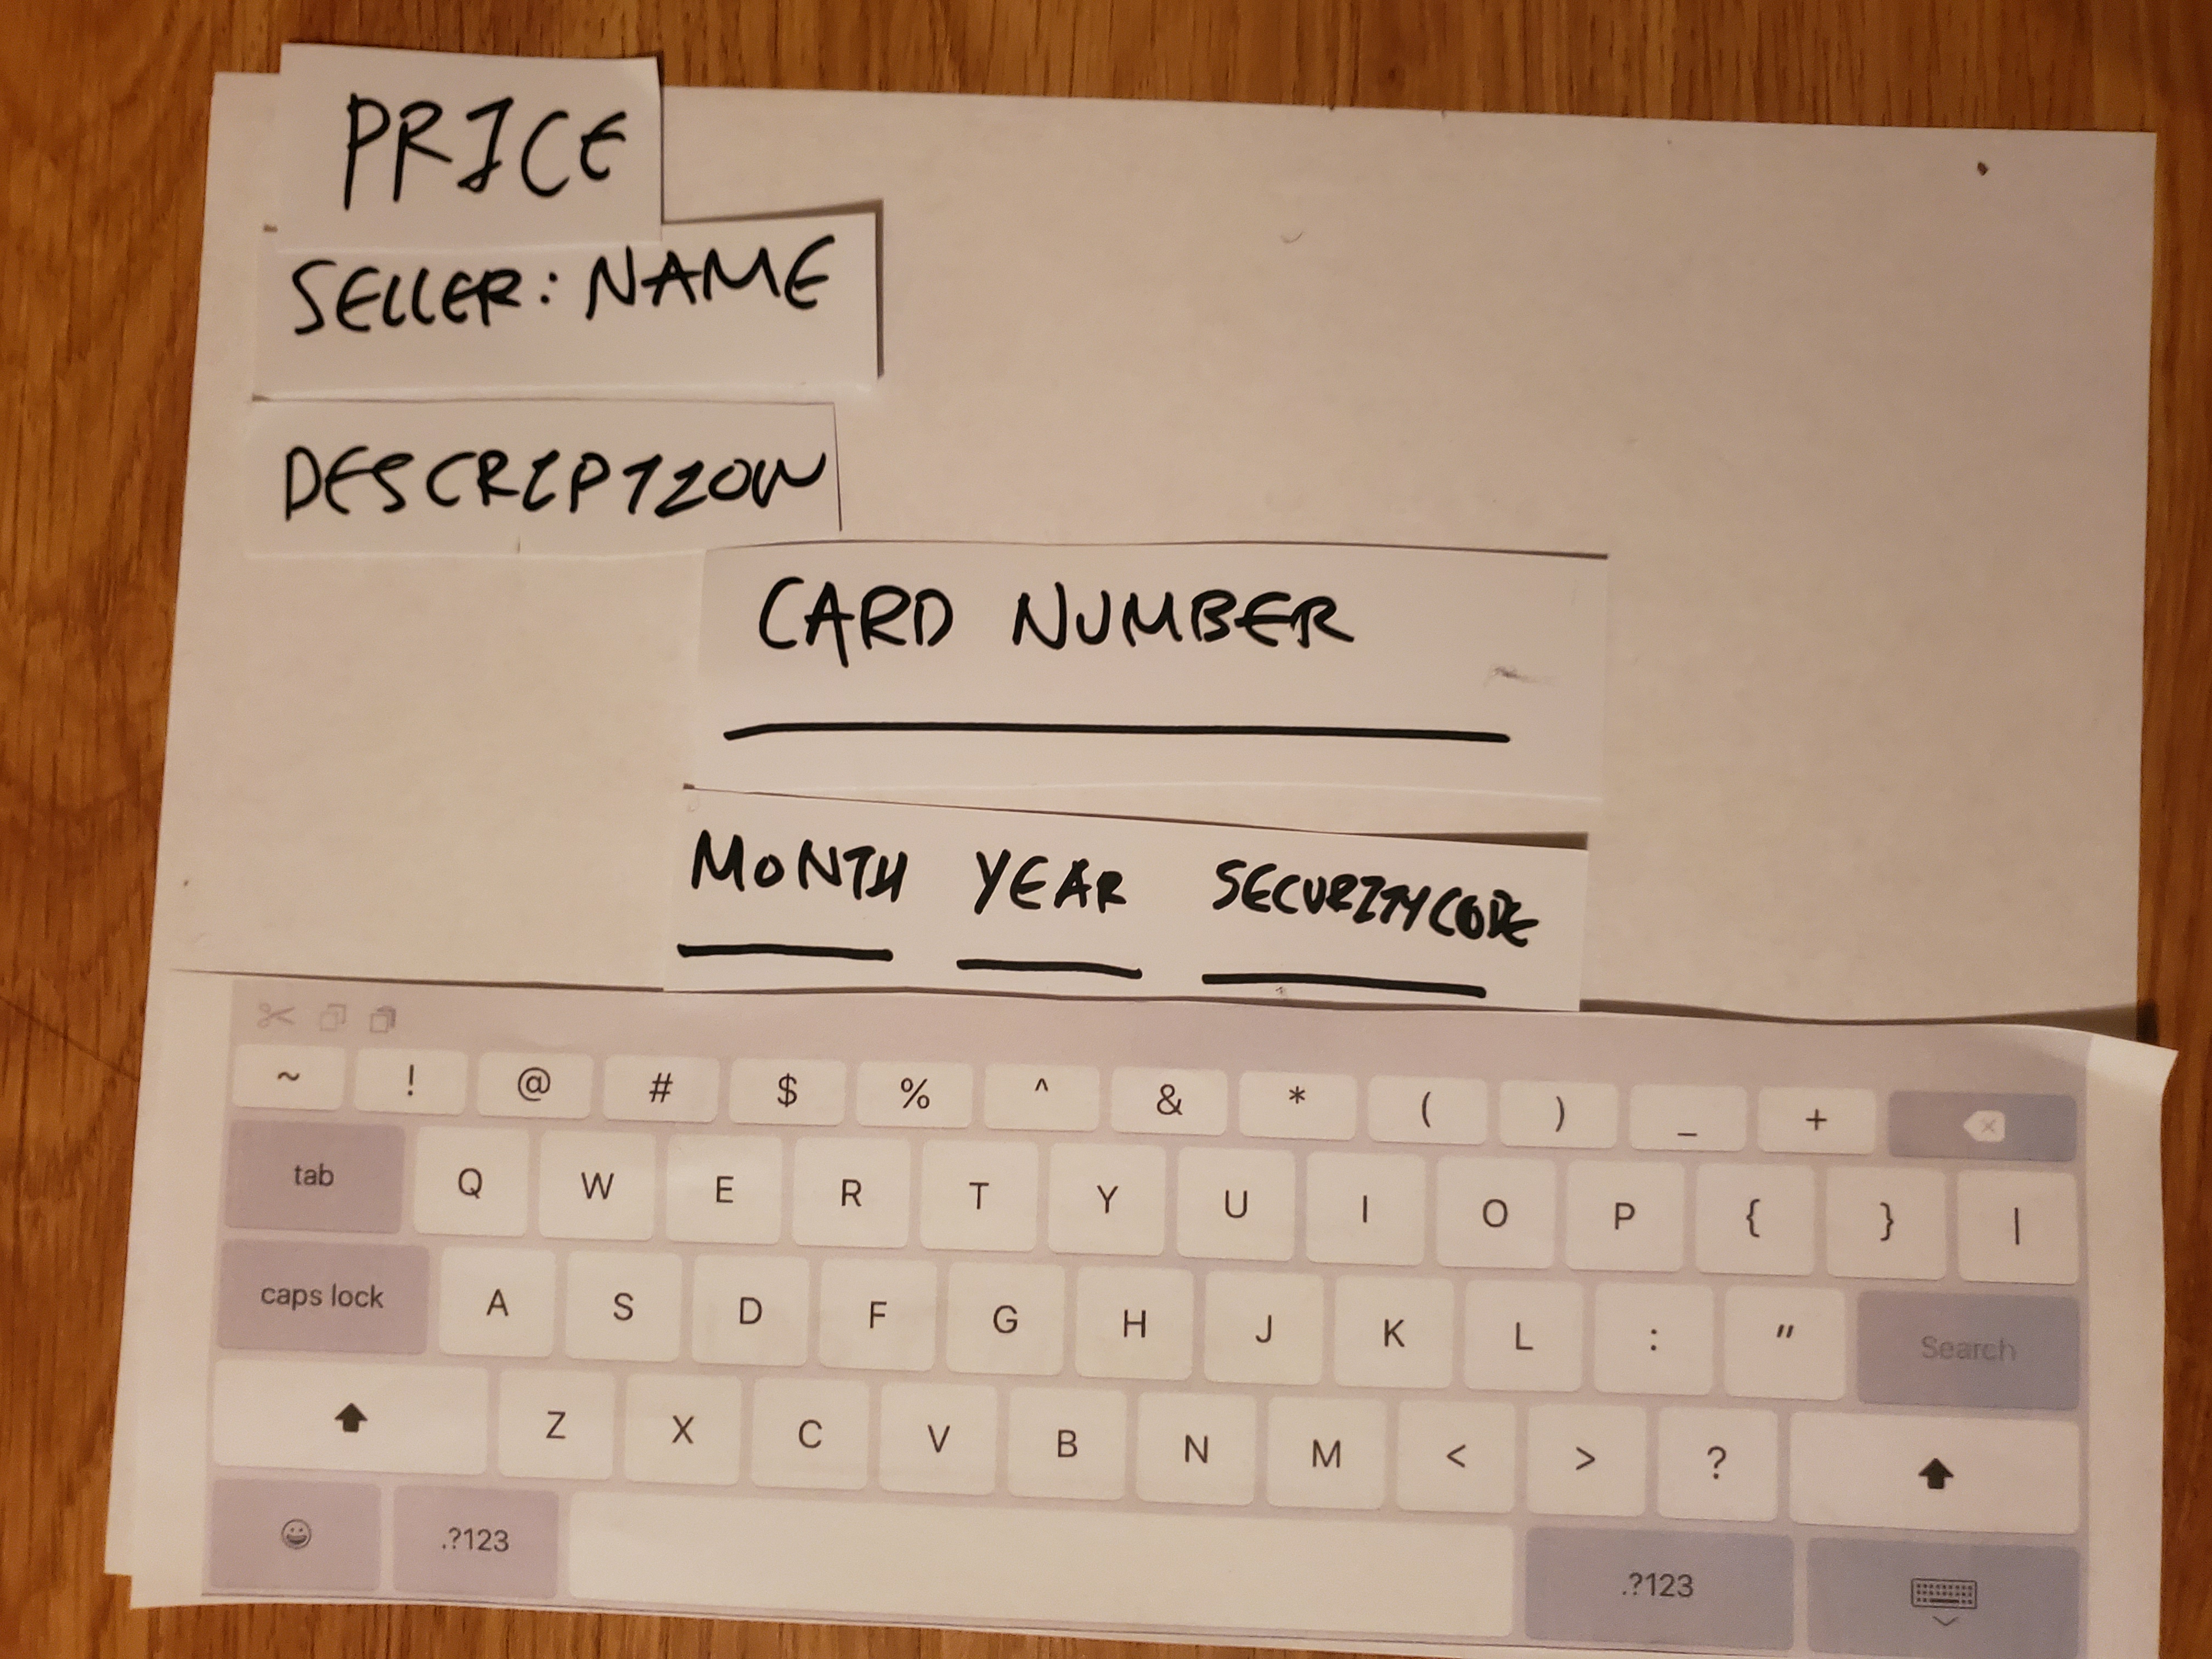 PRICE
SELLER: NAME
DESCRIPTION
CARD NUMBER
MONTH YEAR SECURITY CODE
~ ! @ # $ % ^ & * ( ) _ +
tab Q W E R T Y U I O P { } |
caps lock A S D F G H J K L : " Search
Z X C V B N M < > ?
.?123 .?123